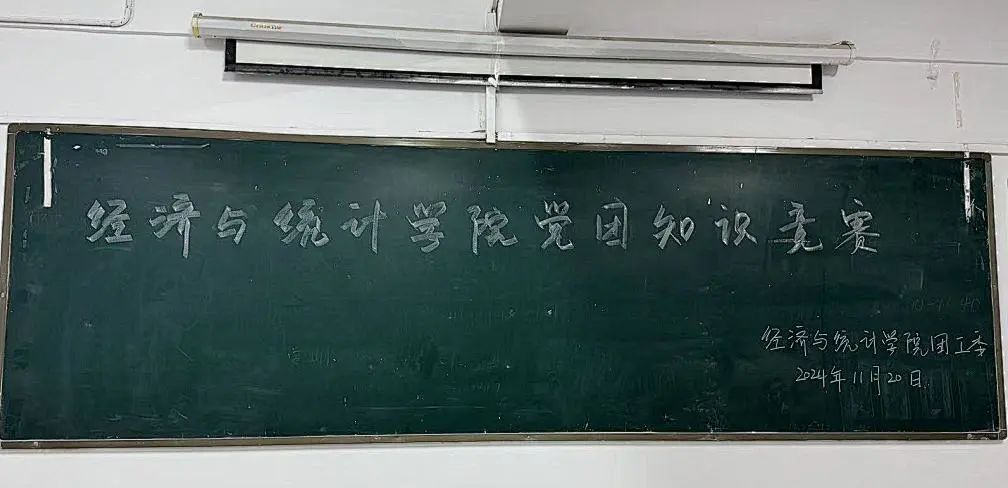 经济与统计学院党团知识竞赛
经济与统计学院团工委
2024年11月20日